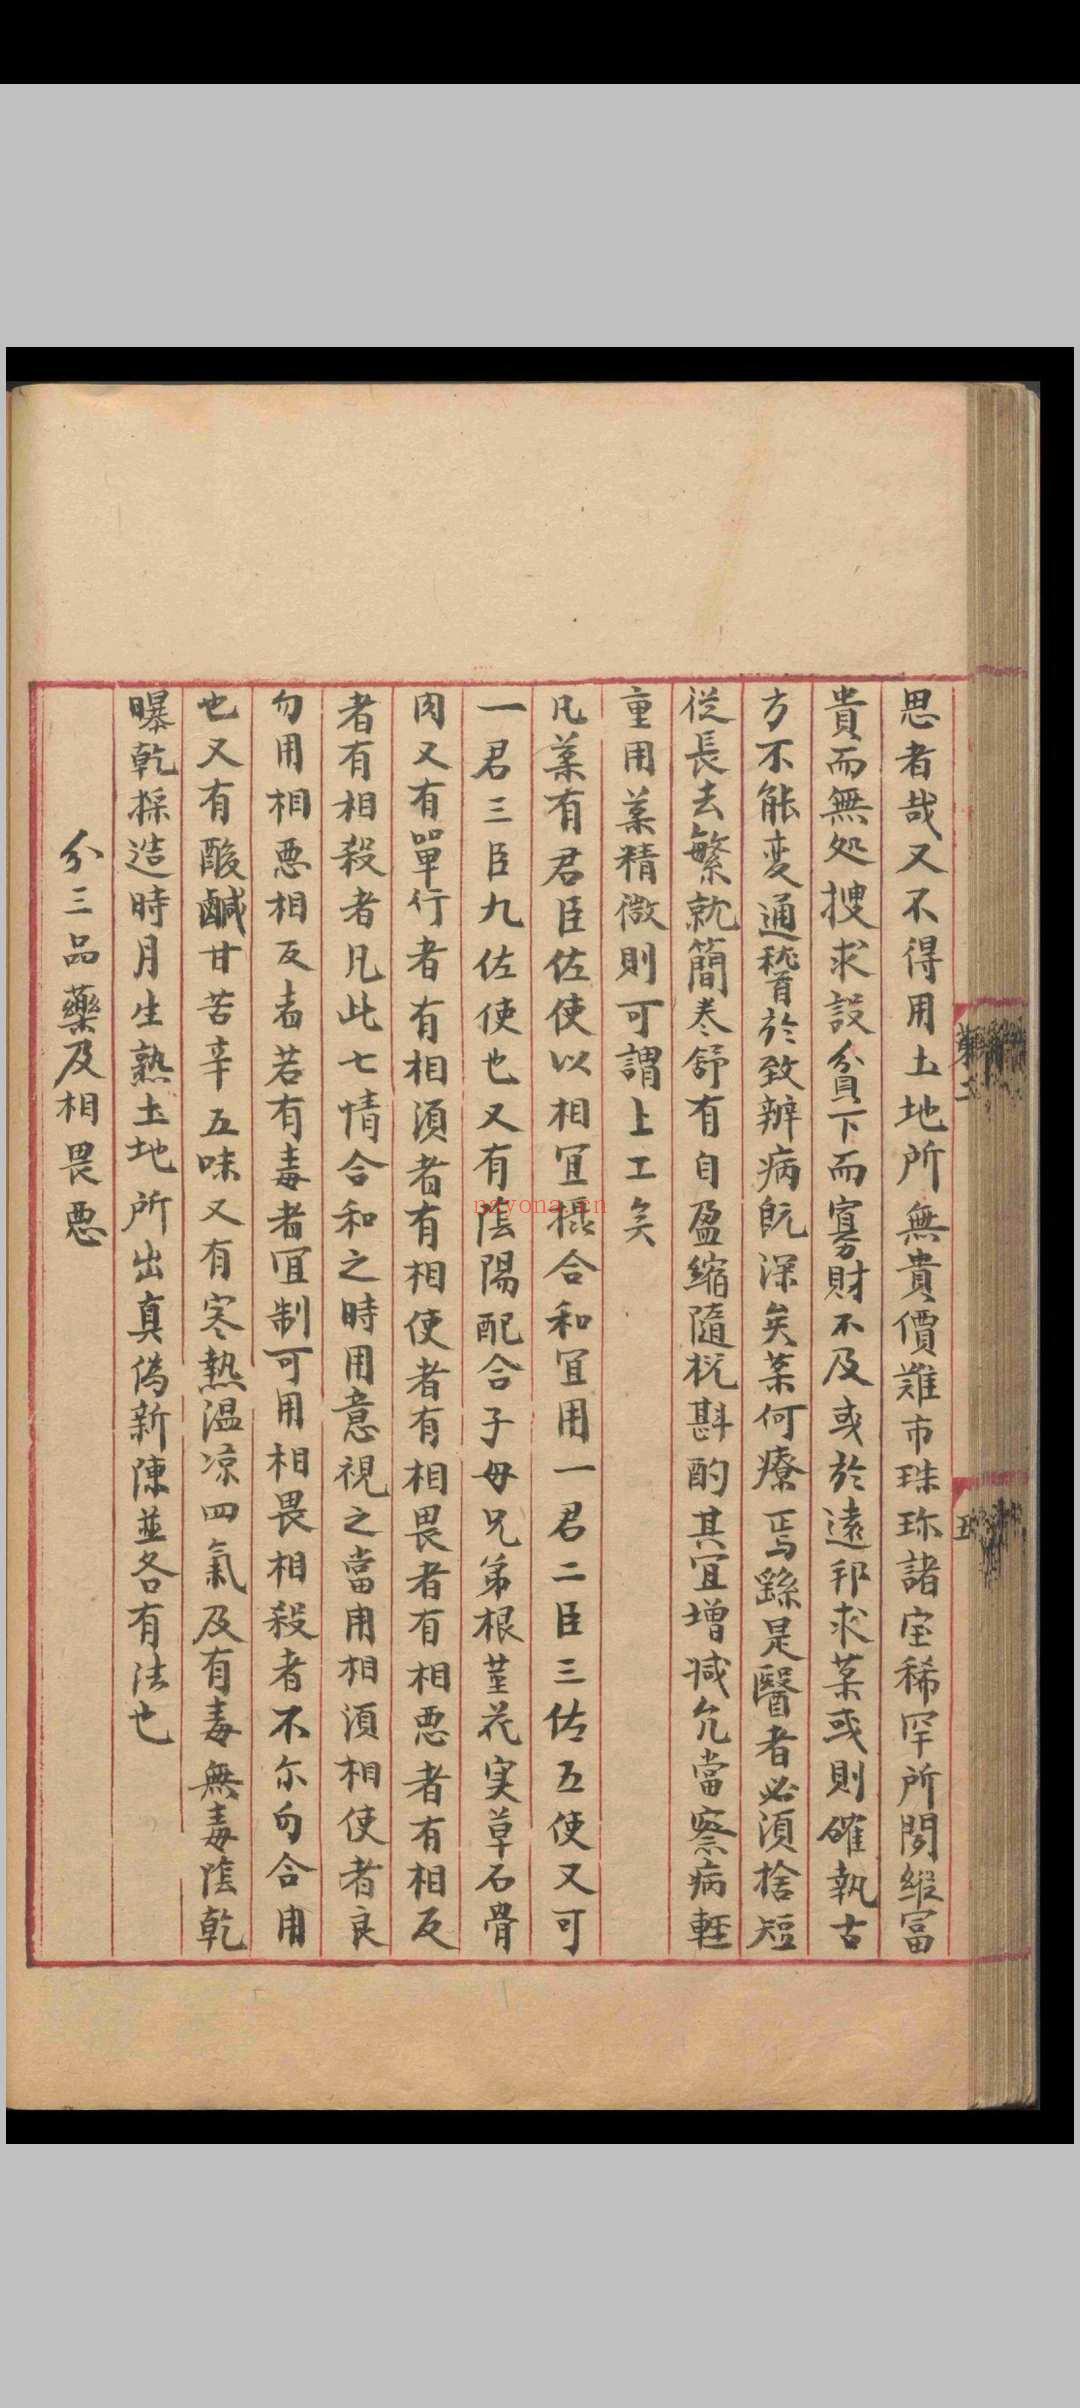 思者哉又不得用土地所無貴價難市珠珎諸宝稀罕所聞縱富
貴而無処搜求設貧下而寡財不及或於遠邦求薬或則確執古
方不能变通稽於致辨病既深矣薬何療焉繇是醫者必湏捨短
従長去繁就簡卷舒有自盈縮隨机斟酌其冝增减允當察病輕
重用薬精微則可謂上工矣
凡薬有君臣佐使以相冝摄合和冝用一君二臣三佐五使又可
一君三臣九佐使也又有陰陽配合子母兄弟根莖花実草石骨
肉又有單行者有相湏者有相使者有相畏者有相悪者有相反
者有相殺者凡此七情合和之時用意視之當用相湏相使者良
勿用相悪相反者若有毒者冝制可用相畏相殺者不尔勿合用
也又有酸鹹甘苦辛五味又有寒熱温凉四氣及有毒無毒陰乾
曝乾採造時月生熟土地所出真偽新陳並各有法也
分三品藥及相畏悪
nzyona.cn